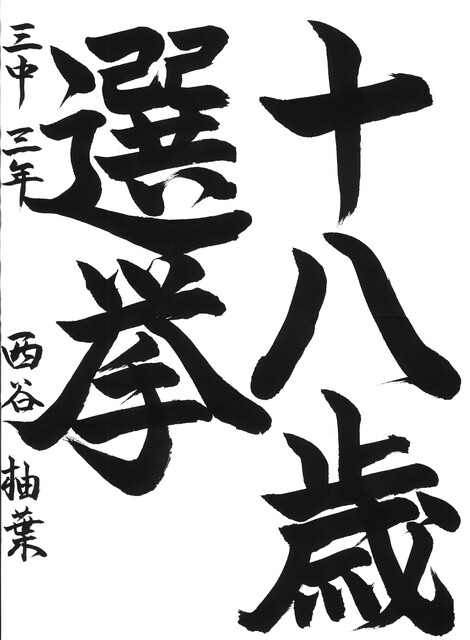 十八歳
選挙
三中 三年 西谷 柚葉